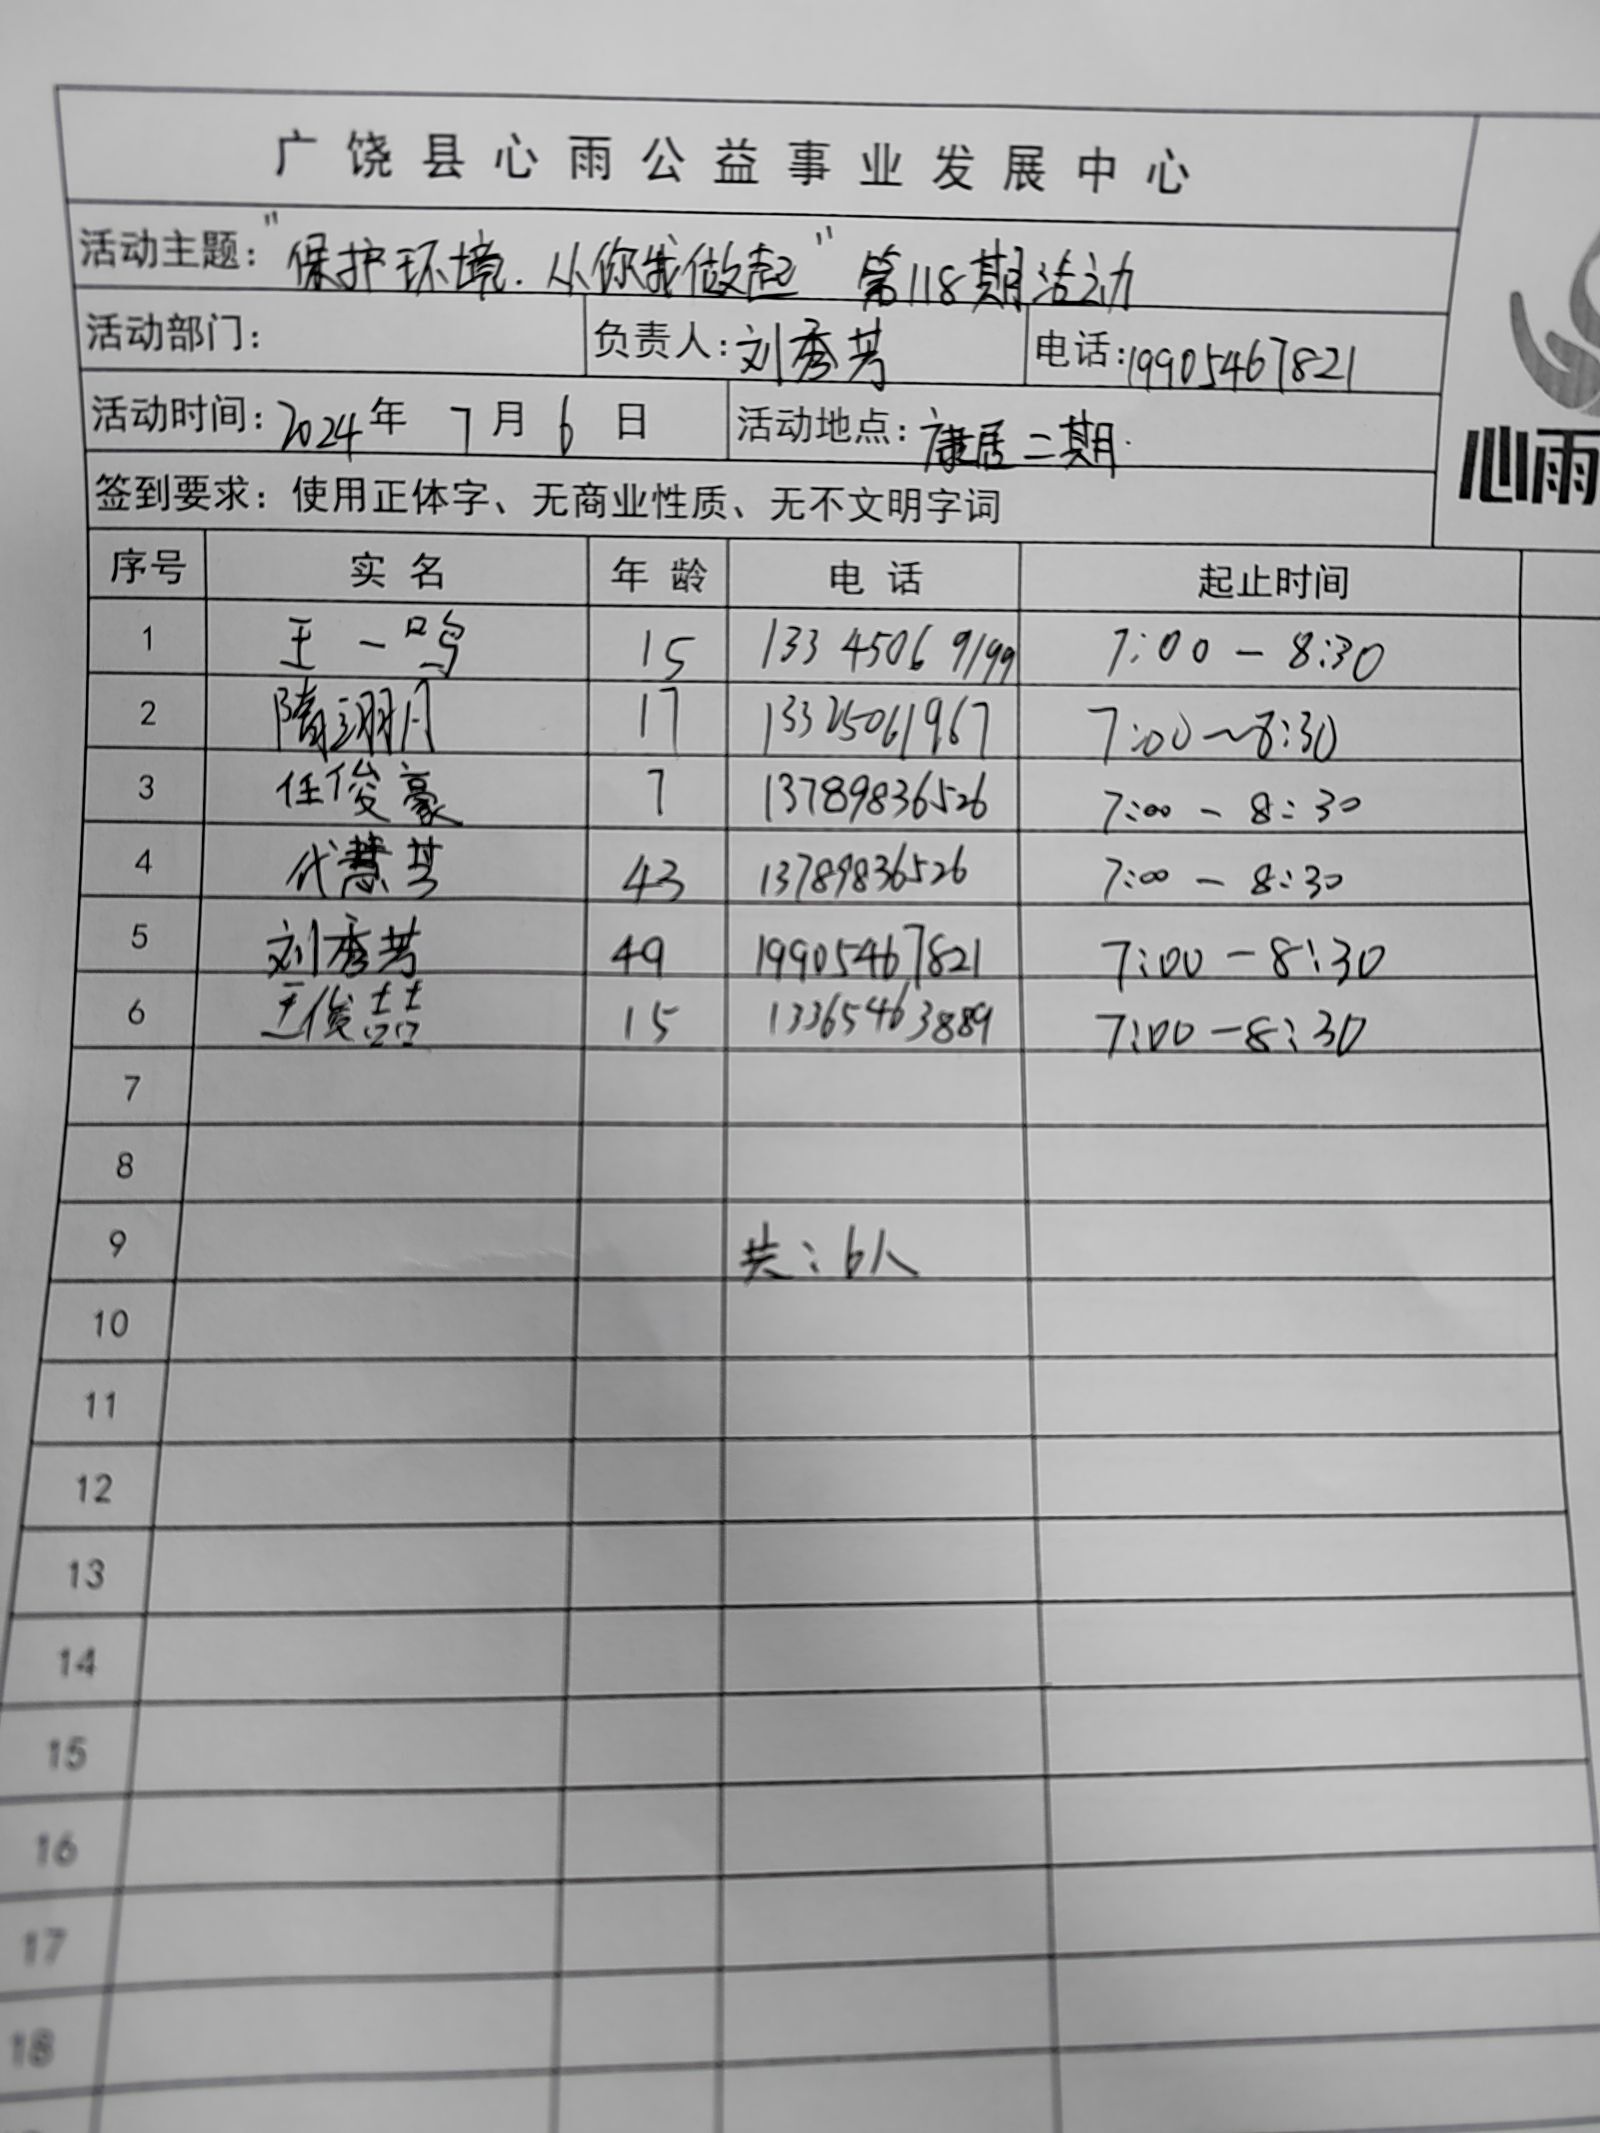 广饶县心雨公益事业发展中心
活动主题："保护环境.从你我做起"第118期活动
活动部门： 负责人：刘秀芳 电话：19905467821
活动时间：2024年 7月6日 活动地点：康居二期.
心雨
签到要求：使用正体字、无商业性质、无不文明字词
序号 实名 年龄 电话 起止时间
1 王一鸣 15 133 4506 9199 7:00-8:30
2 隋翊月 17 13325061967 7:00~8:30
3 任俊豪 7 13789836526 7:00-8:30
4 代慧芳 43 13789836526 7:00-8:30
5 刘秀芳 49 19905467821 7:00-8:30
6 王俊喆 15 13365463889 7:00-8:30
7
8
9 共:6人
10
11
12
13
14
15
16
17
18